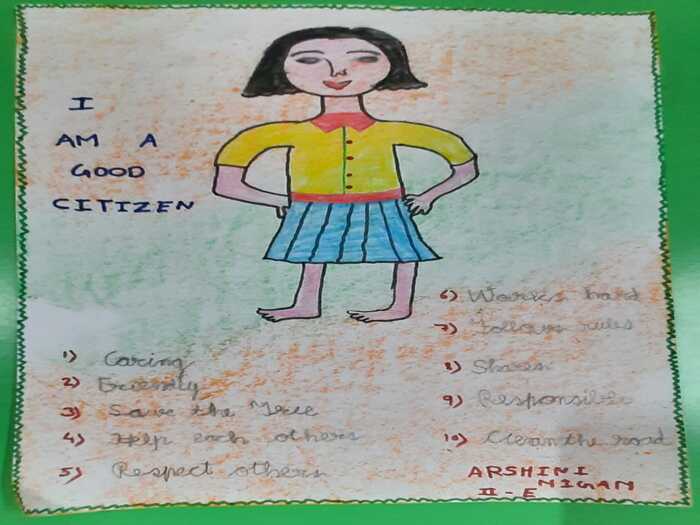 I
AM A
GOOD
CITIZEN
1) Caring
2) Friendly
3) Save the Tree
4) Help each others
5) Respect others
6) Works hard
7) Follows rules
8) Shares
9) Responsible
10) Clean the road
ARSHINI
NIGAN
II-E